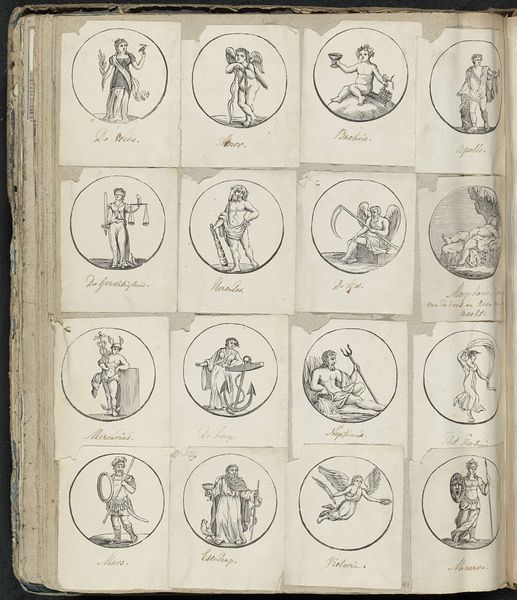 De Vrede.
Amor.
Bachus.
Apollo.
De Geregtigheid.
Hercules.
De Tijd.
Morpheus
nacht.
Mercurius.
De hoop.
Neptunus.
Het Fortuin
Mars.
Esculaap.
Victoria.
Minerva.